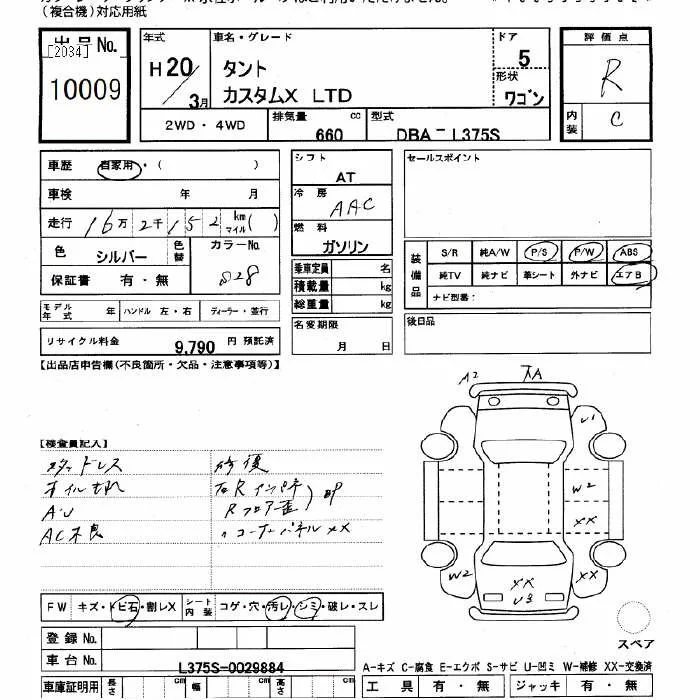 （複合機）対応用紙
出品No.
[2034]
10009
年式
H20/3月
車名・グレード
タント
カスタムX LTD
ドア
5
形状
ワゴン
評価点
R
内装
C
2WD・4WD
排気量 660 cc
型式
DBA-L375S
車歴 自家用・（ ）
車検 年 月
走行 16万2千152 km マイル( )
色 シルバー 色替 カラーNo. 828
保証書 有・無
シフト
AT
冷房
AAC
燃料
ガソリン
乗車定員 名
積載量 kg
総重量 kg
名変期限
月 日
セールスポイント
装備品
S/R 純A/W P/S P/W ABS
純TV 純ナビ 革シート 外ナビ エアB
ナビ型番：
後日品
モデル年式 年 ハンドル 左・右 ディーラー・並行
リサイクル料金 9,790 円 預託済
【出品店申告欄(不良箇所・欠品・注意事項等)】
【検査員記入】
スタッドレス
オイル切れ
A・U
AC不良
修復
右Rインパネ
Rフロア歪
〃コーナーパネルXX
FW キズ・トビ石・割レX シート内装 コゲ・穴・汚レ・シミ・破レ・スレ
登録No.
車台No. L375S-0029884
車庫証明用 長さ cm 幅 cm 高さ cm
A2
A
U1
W2
XX
W2
XX
U3
XX
スペア
A-キズ C-腐食 E-エクボ S-サビ U-凹ミ W-補修 XX-交換済
工具 有・無 ジャッキ 有・無